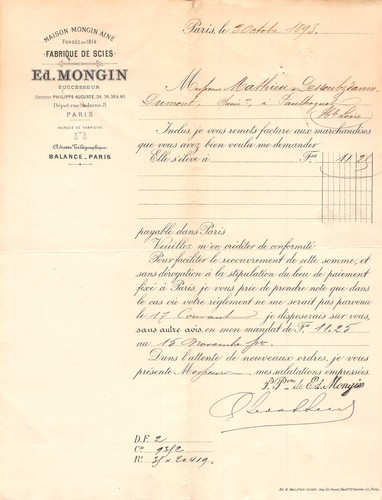 MAISON MONGIN AINÉ
FONDÉE EN 1814
FABRIQUE DE SCIES
ED. MONGIN
SUCCESSEUR
AVENUE PHILIPPE-AUGUSTE, 34, 36, 38 & 40.
Dépôt, rue Sedaine, 3
PARIS
MARQUE DE FABRIQUE
Adresse Télégraphique:
BALANCE_PARIS
Paris, le 3 Octobre 1893
Messieurs Mathieu
Dumont, à Paulhaguet
Hte Loire
Inclus, je vous remets facture aux marchandises
que vous avez bien voulu me demander
Elle s'élève à Frs 11 25
payable dans Paris
Veuillez m'en créditer de conformité
Pour faciliter le recouvrement de cette somme, et
sans dérogation à la stipulation du lieu de paiement
fixé à Paris, je vous prie de prendre note que
dans le cas où votre règlement ne me serait pas parvenu
le 17 Courant je disposerais sur vous,
sans autre avis, en mon mandat de Frs 11.25
au 15 Novembre prv.
Dans l'attente de nouveaux ordres, je vous
présente Messieurs mes salutations empressées.
Pr Pon de Ed. Mongin
D.F. 2
Ce 93/2
R.